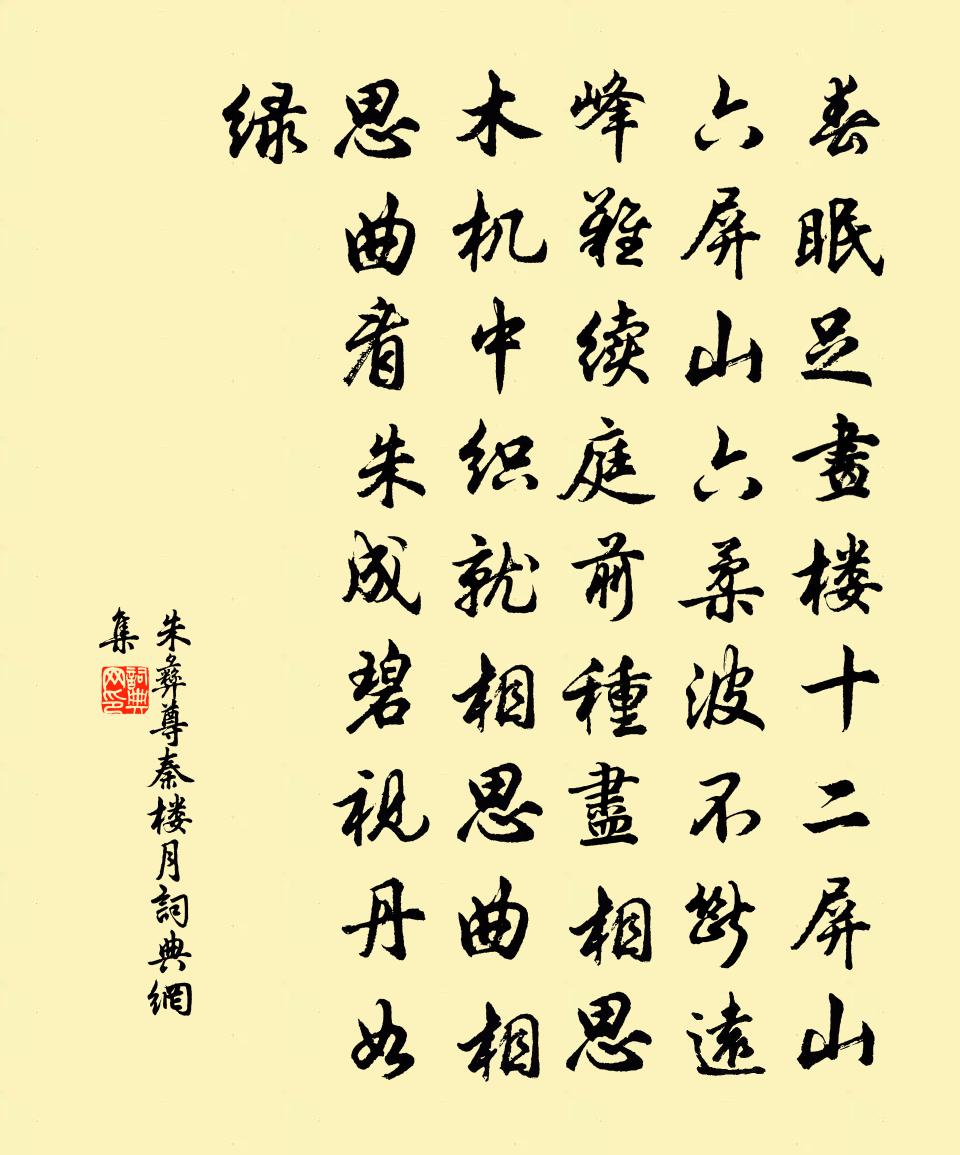 春眠足畫楼十二屏山
六屏山六柔波不断遠
峰難续庭前種盡相思
木机中织就相思曲相
思曲看朱成碧视丹如
绿
朱彝尊秦楼月詞典網
集
詞典網印